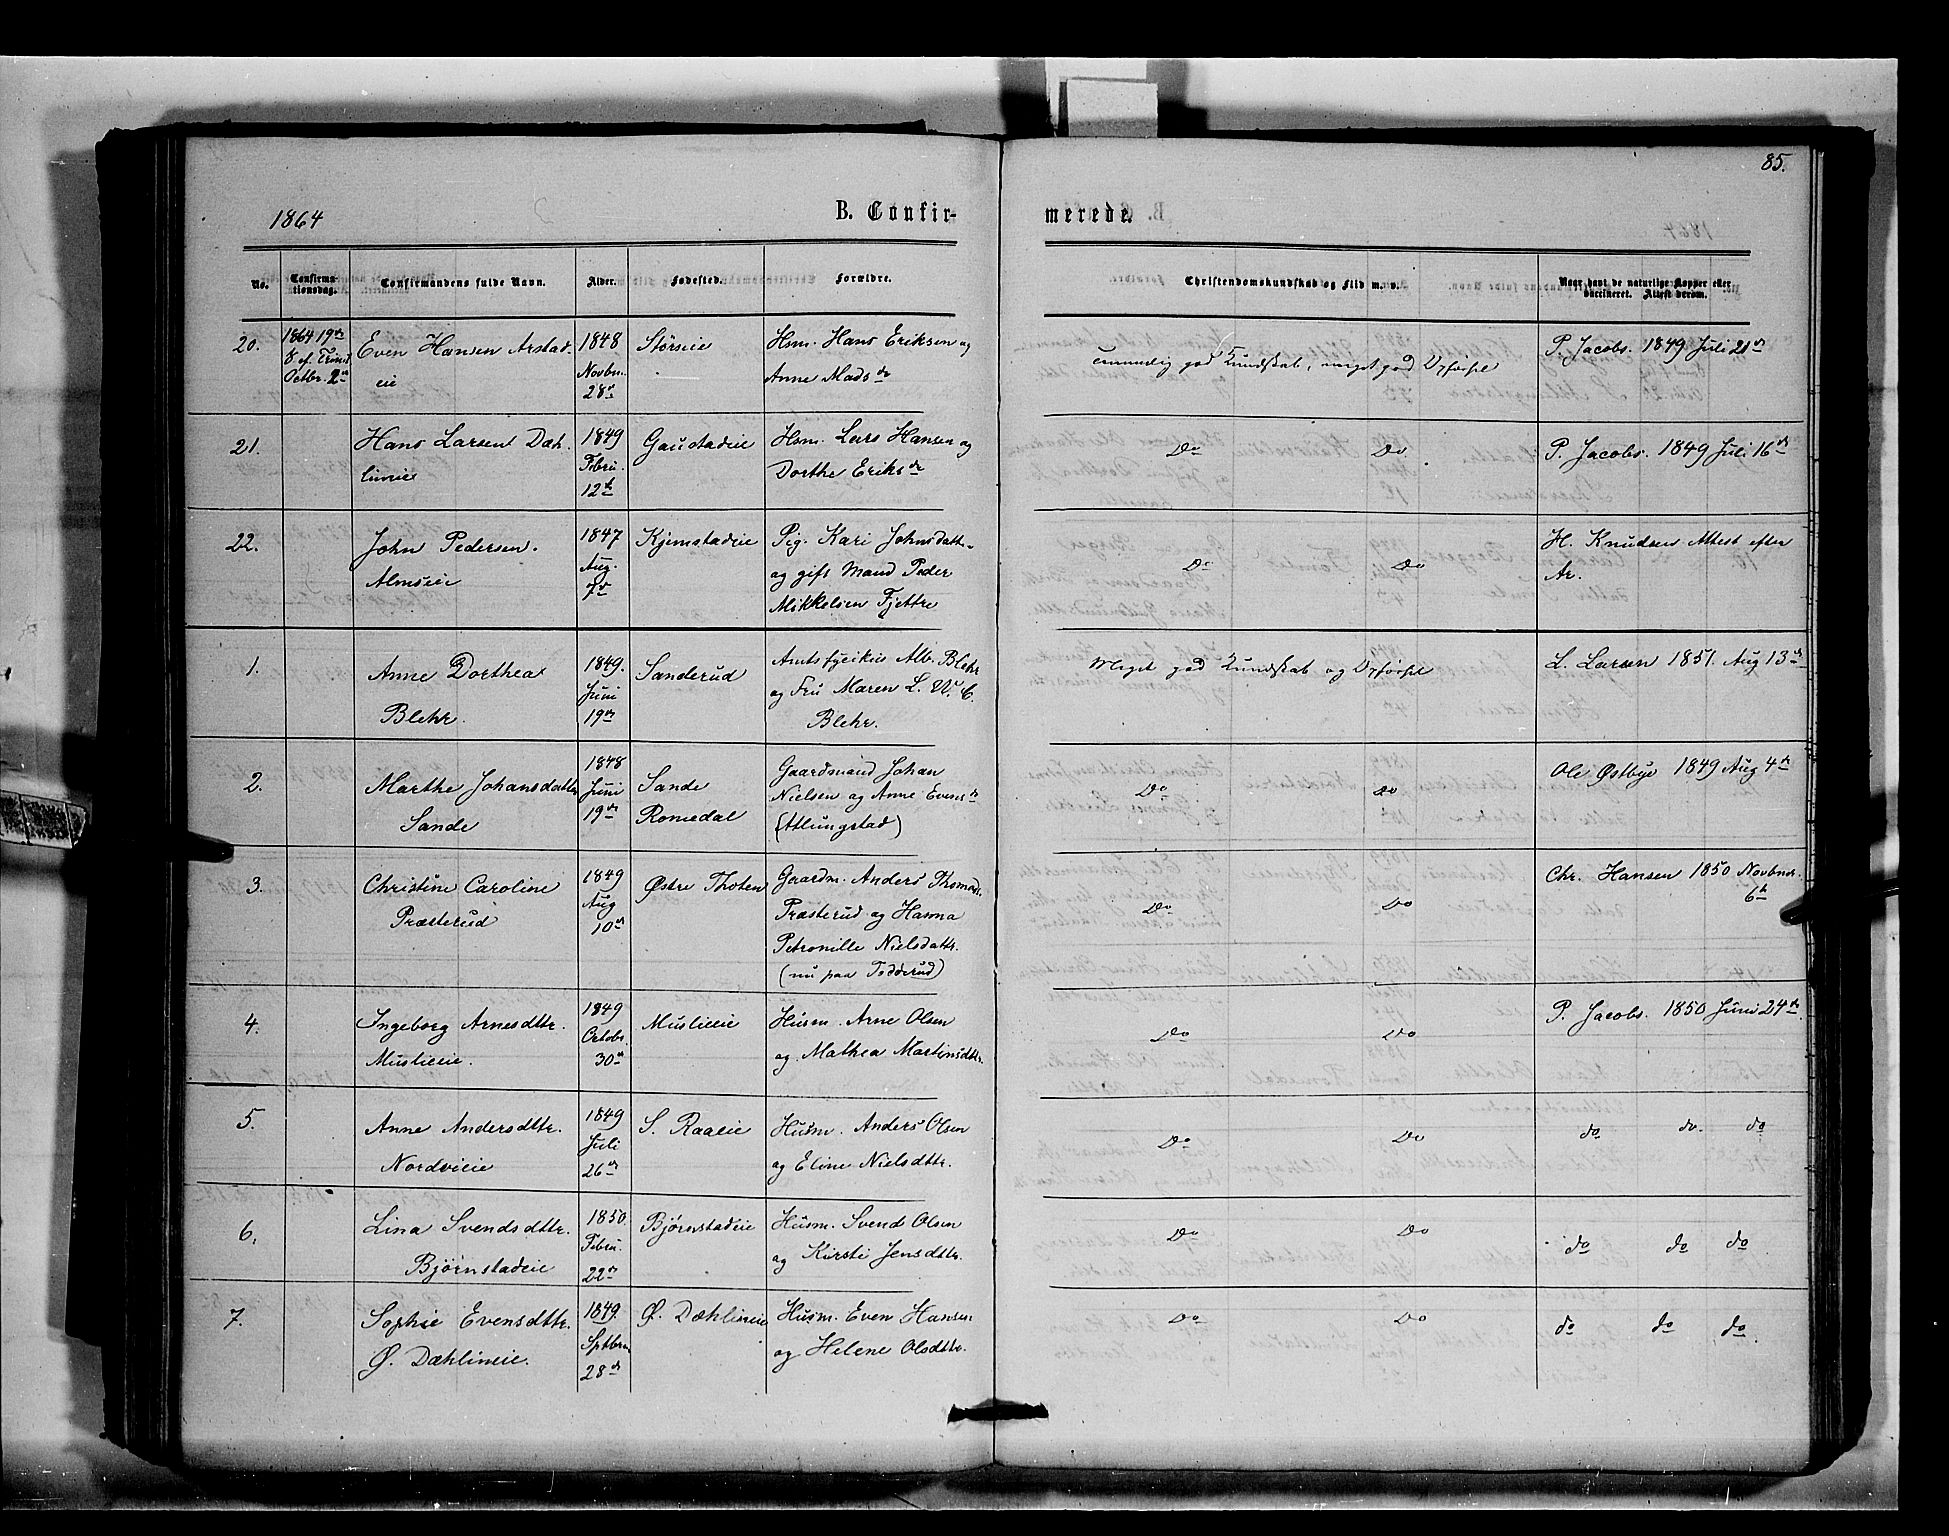 85.
1864
B. Confir-
merede.
No.
Confirma-
tionsdag.
Confirmandens fulde Navn.
Alder.
Fødested.
Forældre.
Christendomskundskab og Flid m. v.
Naar havt de naturlige Kopper eller
vaccineret. Attest derom.
20.
1864 19de
S. ef. Trinit
Octbr. 2den
Even Hansen Arstad-
eie
1848
Novbr.
28de
Størseie
Hsm. Hans Eriksen og
Anne Madsdr
god Kundskab, meget god Opførsel
P. Jacobs. 1849 Juli 21de
21.
Hans Larsen Dæh-
lineie
1849
Febru.
12te
Gaustadeie
Hsm. Lars Hansen og
Dorthe Eriksdr
Do
Do
P. Jacobs. 1849 Juli 16de
22.
John Pedersen.
Almseie
1847
Aug.
7de
Kjemstadeie
Pig. Kari Johnsdatt.
og gift Mand Peder
Mikkelsen Fjettre
Do
Do
H. Knudsen Attest efter
Ar.
1.
Anne Dorthea
Blehr.
1849.
Juni
19de
Sanderud
Amtsfysikus Alb. Blehr
og Fru Maren L. W. C.
Blehr.
Meget god Kundskab og Opførsel
L. Larsen 1851. Aug 13de
2.
Marthe Johansdatter
Sande
1848
Juni
19de
Sande
Romedal
Gaardmand Johan
Nielsen og Anne Evensdr
(Atlungstad)
Do
Do
Ole Østbye 1849 Aug 4de
3.
Christine Caroline
Præsterud
1849
Aug
10de
Østre Thoten
Gaardm. Anders Thomes.
Præsterud og Hanna
Petronille Nielsdattr.
(nu paa Todderud)
Do
Do
Chr. Hansen 1850 Novbr.
6te
4.
Ingeborg Arnesdttr.
Muslieeie.
1849
Octobr.
30te
Muslieeie
Husm. Arne Olsen
og Mathea Martinsdttr.
Do
Do
P. Jacobs. 1850 Juni 24de
5.
Anne Andersdttr.
Nordvieie
1849
Juli
26de
S. Raaeie
Husm. Anders Olsen
og Eline Nielsdttr.
Do
Do
do
do.
do
6.
Lina Svendsdttr.
Bjørnstadeie
1850.
Febru.
22de
Bjørnstadeie
Husm. Svend Olsen
og Kirsti Jensdttr.
Do
Do
do
do
do
7.
Sophie Evensdttr.
Ø. Dæhlineie.
1849.
Septbr.
28de
Ø. Dæhlineie
Husm. Even Hansen
og Helene Olsdttr.
Do
Do
do
do
do